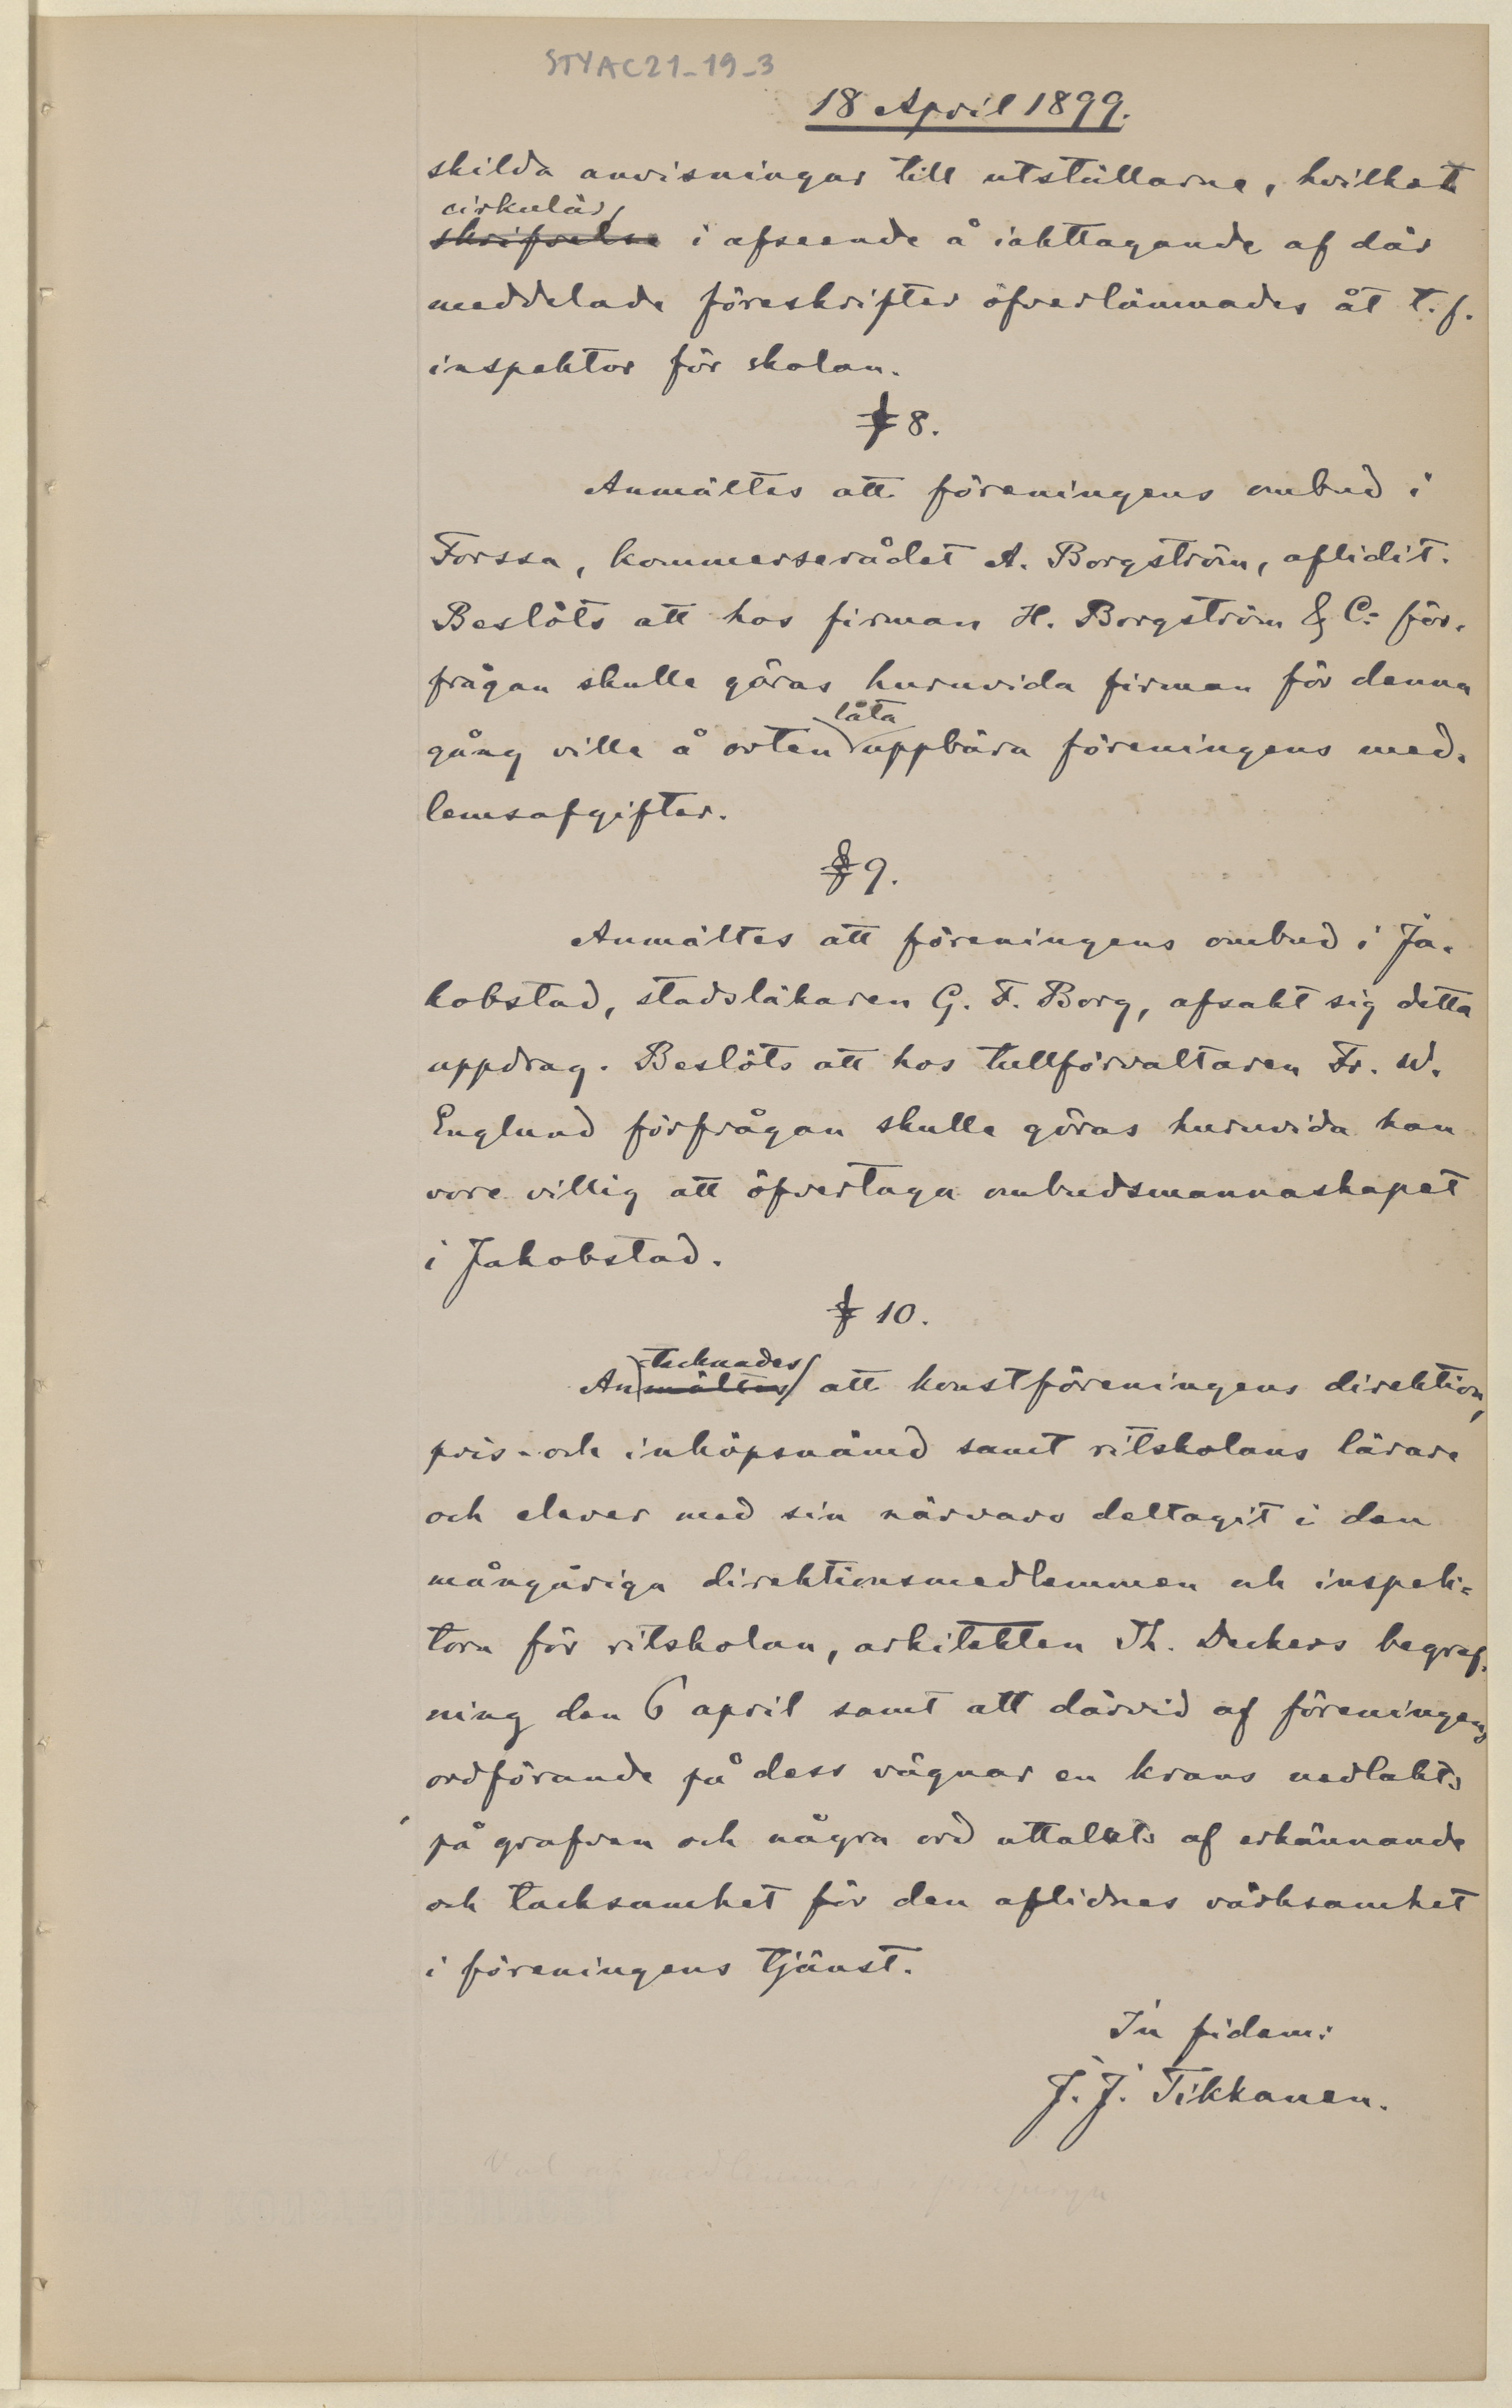 STYAC21-19-3
18 April 1899.
skilda anvisningar till utställarne, hvilket
cirkulär
skrifvelse i afseende å iakttagande af där
meddelade föreskrifter öfverlämnades åt t. f.
inspektor för skolan.
§ 8.
Anmältes att föreningens ombud i
Forssa, kommerserådet A. Borgström, aflidit.
Beslöts att hos firman H. Borgström & C: för-
frågan skulle göras huruvida firman för denna
låta
gång ville å orten uppbära föreningens med-
lemsafgifter.
§ 9.
Anmältes att föreningens ombud i Ja-
kobstad, stadsläkaren G. F. Borg, afsakt sig detta
uppdrag. Beslöts att hos tullförvaltaren Fr. W.
Englund förfrågan skulle göras huruvida han
vore villig att öfvertaga ombudsmannaskapet
i Jakobstad.
§ 10.
tecknades
Anmältes att konstföreningens direktion,
pris- och inköpsnämd samt ritskolans lärare
och elever med sin närvaro deltagit i den
mångåriga direktionsmedlemmen och inspek-
torn för ritskolan, arkitekten Th. Deckers begraf-
ning den 6 april samt att därvid af föreningens
ordförande på dess vägnar en krans nedlakts
på grafven och några ord uttalats af erkännande
och tacksamhet för den aflidnes värksamhet
i föreningens tjänst.
In fidem:
J. J. Tikkanen.